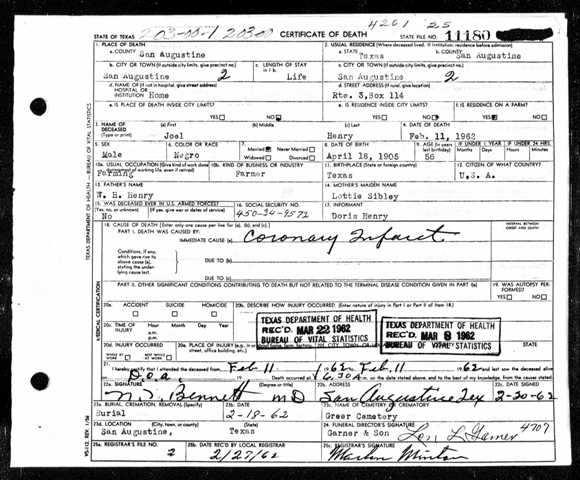 4261 25
203-00-1 20300
STATE OF TEXAS CERTIFICATE OF DEATH STATE FILE NO. 11180
1. PLACE OF DEATH 2. USUAL RESIDENCE (Where deceased lived. If institution: residence before admission)
a. COUNTY San Augustine a. STATE Texas b. COUNTY San Augustine
b. CITY OR TOWN (If outside city limits, give precinct no.) c. LENGTH OF STAY in 1 b. c. CITY OR TOWN (If outside city limits, give precinct no.)
San Augustine 2 Life San Augustine 2
d. NAME OF (If not in hospital, give street address) HOSPITAL OR INSTITUTION Home d. STREET ADDRESS (If rural, give location) Rte. 3, Box 114
e. IS PLACE OF DEATH INSIDE CITY LIMITS? e. IS RESIDENCE INSIDE CITY LIMITS? f. IS RESIDENCE ON A FARM?
YES NO YES NO YES NO
3. NAME OF DECEASED (Type or print) (a) First (b) Middle (c) Last 4. DATE OF DEATH
Joel Henry Feb. 11, 1962
5. SEX 6. COLOR OR RACE 7. Married Never Married Widowed Divorced 8. DATE OF BIRTH 9. AGE (In years last birthday) IF UNDER 1 YEAR IF UNDER 24 HRS.
Male Negro April 18, 1905 56
10a. USUAL OCCUPATION (Give kind of work done during most of working life, even if retired) 10b. KIND OF BUSINESS OR INDUSTRY 11. BIRTHPLACE (State or foreign country) 12. CITIZEN OF WHAT COUNTRY?
Farming Farmer Texas U.S.A.
13. FATHER'S NAME 14. MOTHER'S MAIDEN NAME
W. H. Henry Lottie Sibley
15. WAS DECEASED EVER IN U.S. ARMED FORCES? 16. SOCIAL SECURITY NO. 17. INFORMANT
(Yes, no, or unknown) (If yes, give war or dates of service)
No 450-34-9572 Doris Henry
18. CAUSE OF DEATH [Enter only one cause per line for (a), (b), and (c).] INTERVAL BETWEEN ONSET AND DEATH
PART I. DEATH WAS CAUSED BY: IMMEDIATE CAUSE (a) Coronary Infarct
Conditions, if any, which gave rise to above cause (a), stating the underlying cause last. DUE TO (b)
DUE TO (c)
PART II. OTHER SIGNIFICANT CONDITIONS CONTRIBUTING TO DEATH BUT NOT RELATED TO THE TERMINAL DISEASE CONDITION GIVEN IN PART I(a) 19. WAS AUTOPSY PERFORMED?
YES NO
20a. ACCIDENT SUICIDE HOMICIDE 20b. DESCRIBE HOW INJURY OCCURRED. (Enter nature of injury in Part I or Part II of item 18.)
20c. TIME OF INJURY Hour Month Day Year
a.m.
p.m.
TEXAS DEPARTMENT OF HEALTH
REC'D MAR 22 1962
BUREAU OF VITAL STATISTICS
TEXAS DEPARTMENT OF HEALTH
REC'D MAR 8 1962
BUREAU OF VITAL STATISTICS
20d. INJURY OCCURRED WHILE AT WORK NOT WHILE AT WORK
21. Feb 11 1962 Feb. 11 1962 and last saw the deceased alive
D.O.A. 6:30 A
22a. SIGNATURE (Degree or title) 22b. ADDRESS 22c. DATE SIGNED
Bennett MD San Augustine Tex 2-20-62
23a. BURIAL, CREMATION, REMOVAL (Specify) 23b. DATE 23c. NAME OF CEMETERY OR CREMATORY
Burial 2-18-62 Greer Cemetery
23d. LOCATION (City, town, or county) (State) 24. FUNERAL DIRECTOR'S SIGNATURE
San Augustine, Texas Garner & Son 4707
25a. REGISTRAR'S FILE NO. 25b. DATE REC'D BY LOCAL REGISTRAR 25c. REGISTRAR'S SIGNATURE
2 2/27/62
TEXAS DEPARTMENT OF HEALTH — BUREAU OF VITAL STATISTICS
MEDICAL CERTIFICATION